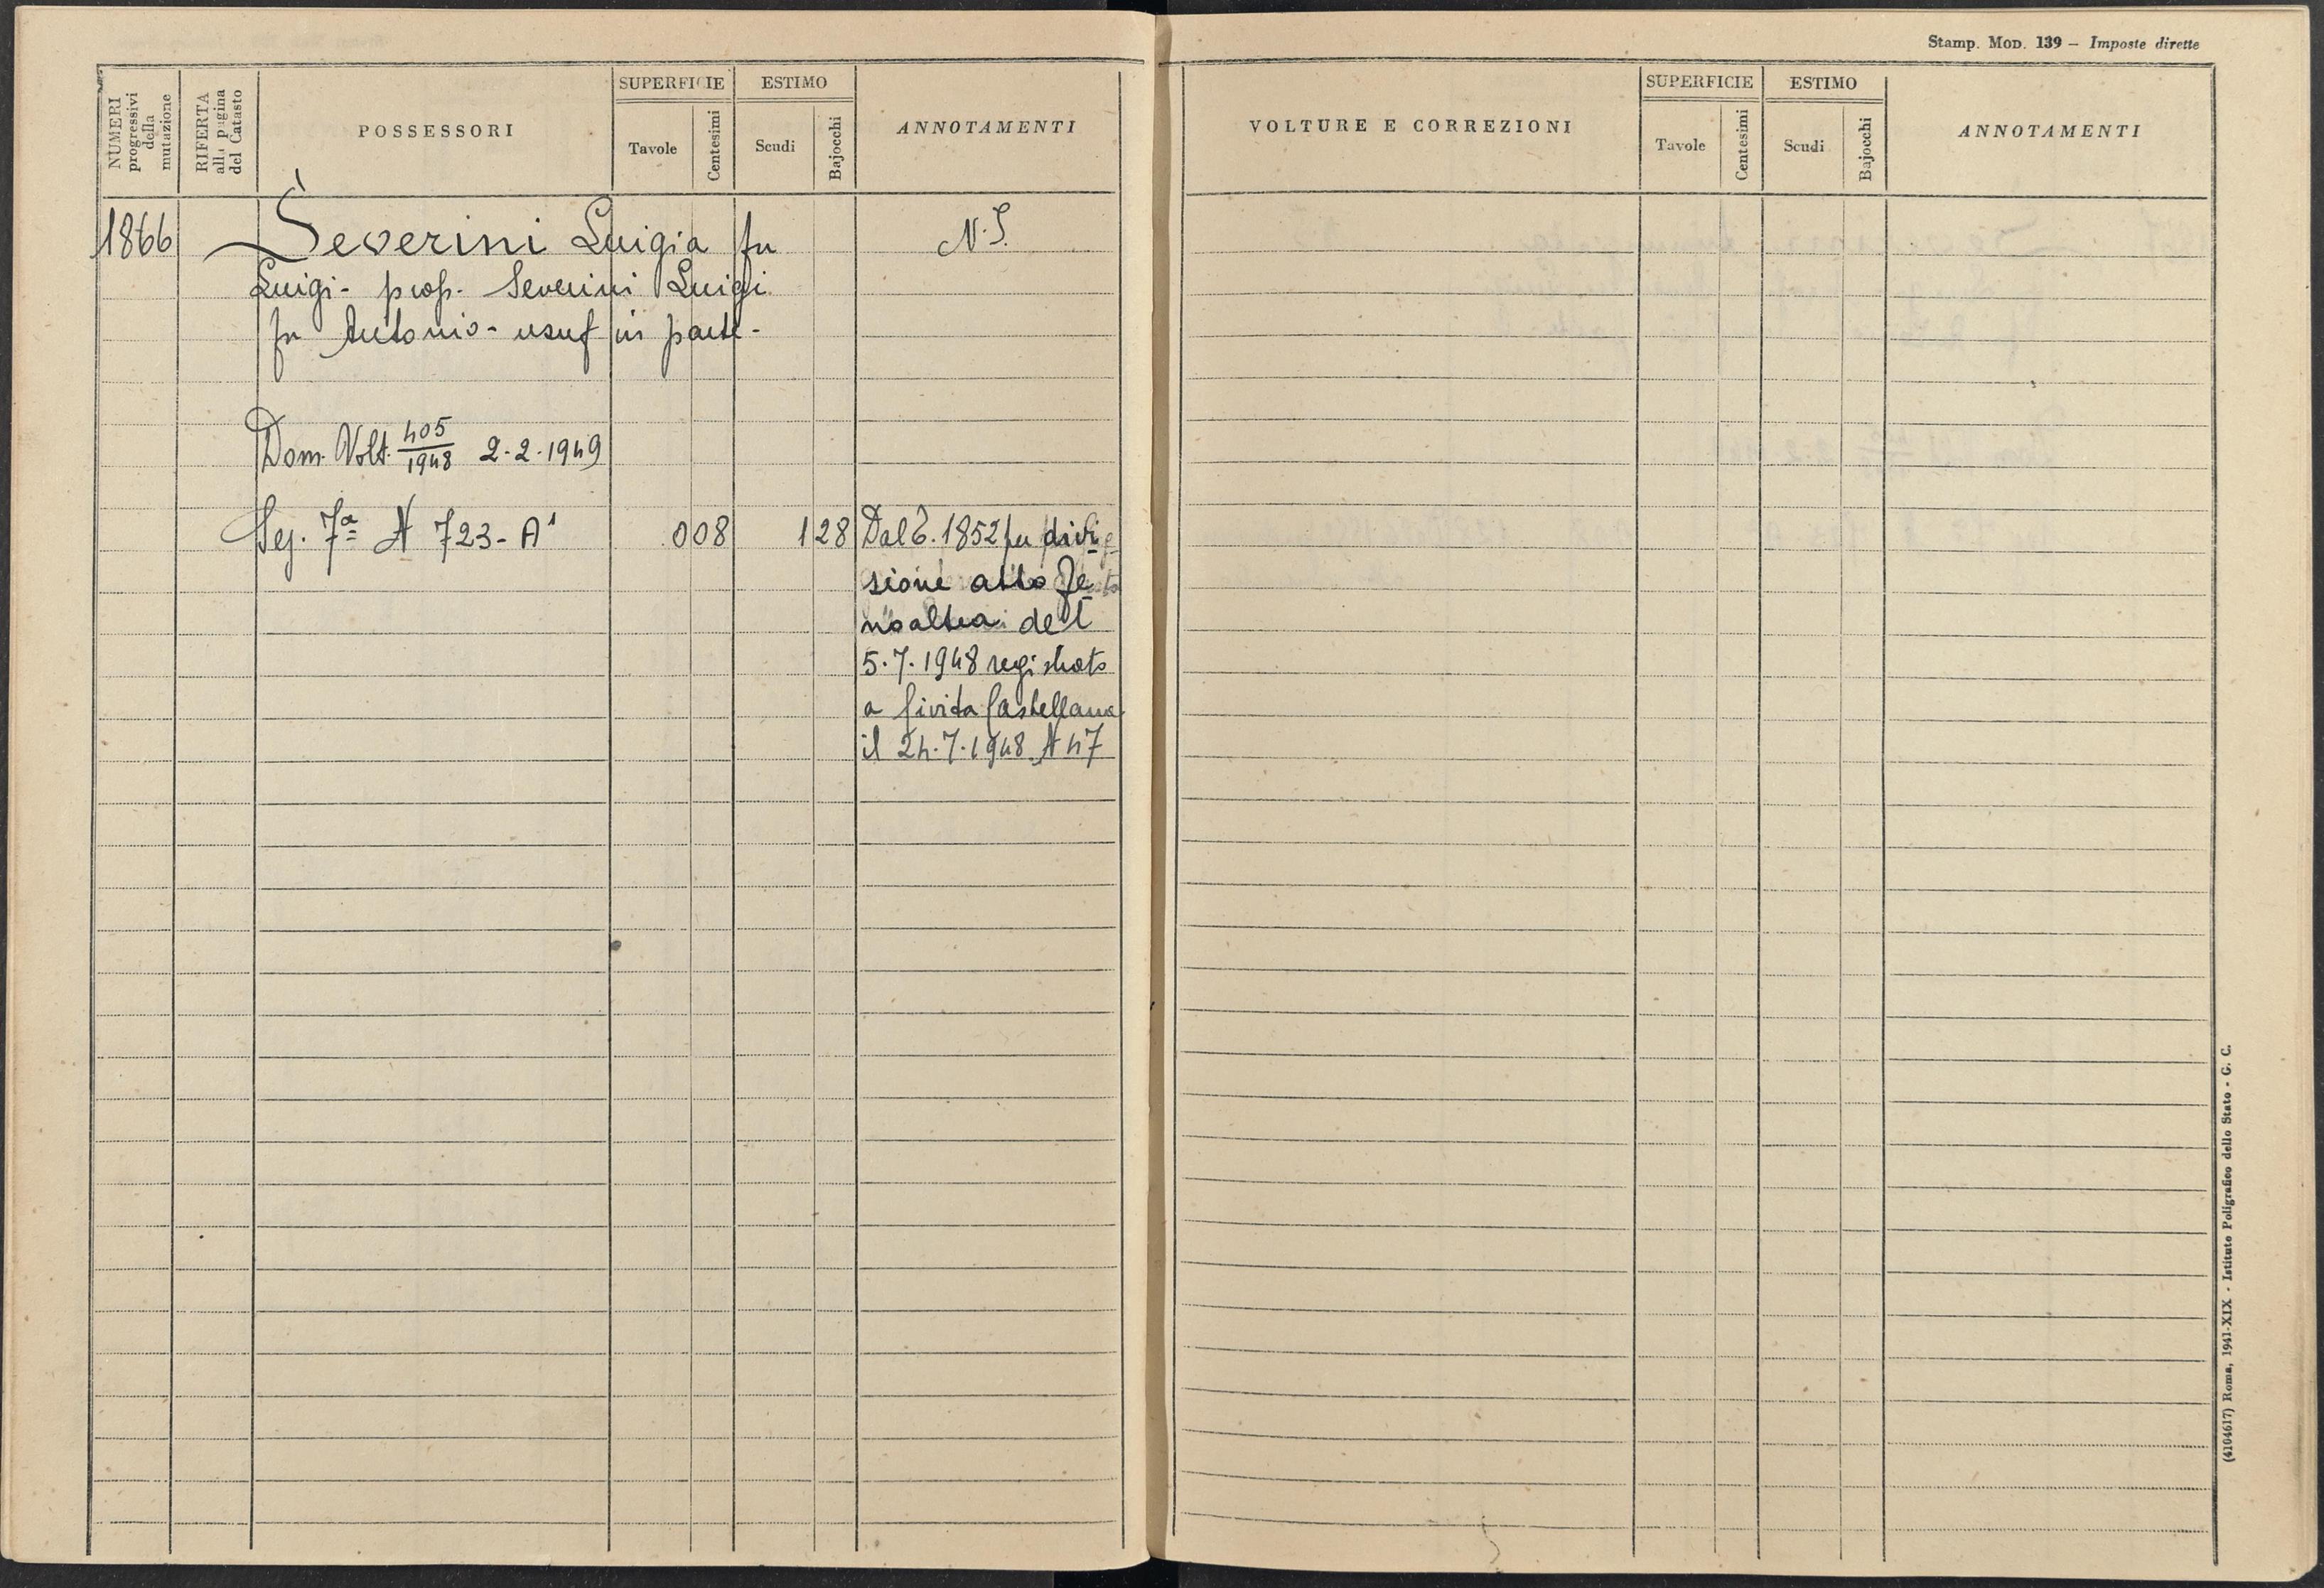 Stamp. Mod. 139 – Imposte dirette
NUMERI progressivi della mutazione
RIFERTA alla pagina del Catasto
POSSESSORI
SUPERFICIE
Tavole
Centesimi
ESTIMO
Scudi
Bajocchi
ANNOTAMENTI
VOLTURE E CORREZIONI
SUPERFICIE
Tavole
Centesimi
ESTIMO
Scudi
Bajocchi
ANNOTAMENTI
1866 Severini Luigia fu N.S.
Luigi - prop. Severini Luigi
fu Antonio - usuf in parte -
Dom. Volt. 405/1948 2-2-1949
Sez. 7ª N 723-A' 008 128 Dal C. 1852 per divi-
sione atto
del
5.7.1948 registrato
a Civita Castellana
il 24.7.1948 N 47
(4104617) Roma, 1941-XIX - Istituto Poligrafico dello Stato - G. C.